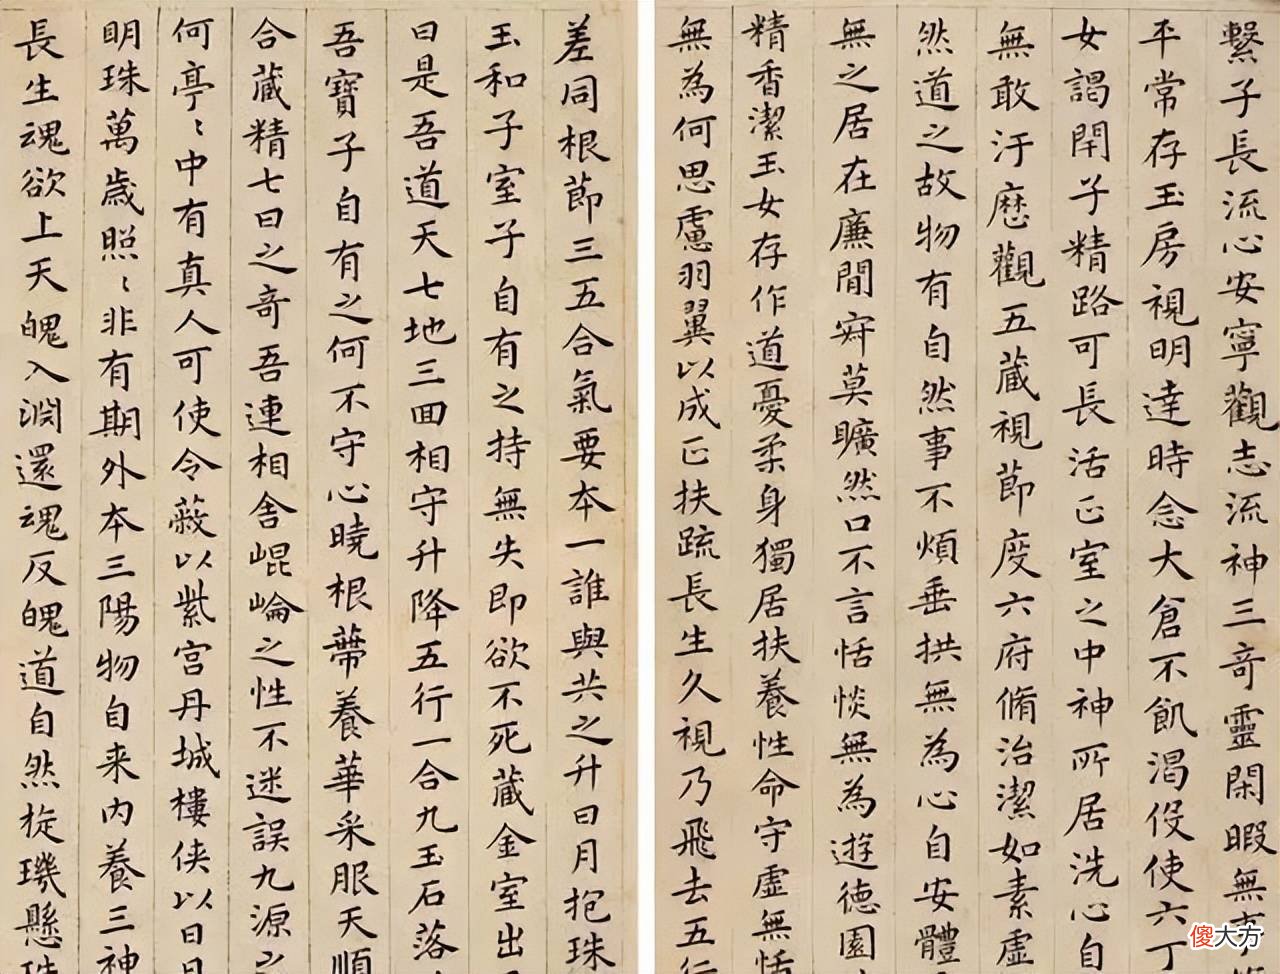 繫子長流心安寧觀志流神三奇靈閑暇無事
平常存玉房視明達時念大倉不飢渴伇使六丁
女謁開子精路可長活正室之中神所居洗心自
無敢汙歷觀五藏視節度六府脩治潔如素虛
然道之故物有自然事不煩垂拱無為心自安體
無之居在廉間寂莫曠然口不言恬惔無為遊德園
精香潔玉女存作道憂柔身獨居扶養性命守虛無恬
無為何思慮羽翼以成正扶疏長生久視乃飛去五行
差同根節三五合氣要本一誰與共之升日月抱珠
玉和子室子自有之持無失即欲不死藏金室出
曰是吾道天七地三回相守升降五行一合九玉石落
吾寶子自有之何不守心曉根蔕養華采服天順
合藏精七日之奇吾連相舍崐崘之性不迷誤九源之
何亭〻中有真人可使令蔽以紫宮丹城樓俠以日月
明珠萬歲照〻非有期外本三陽物自来内養三神
長生魂欲上天魄入淵還魂反魄道自然旋璣懸珠
傻大方